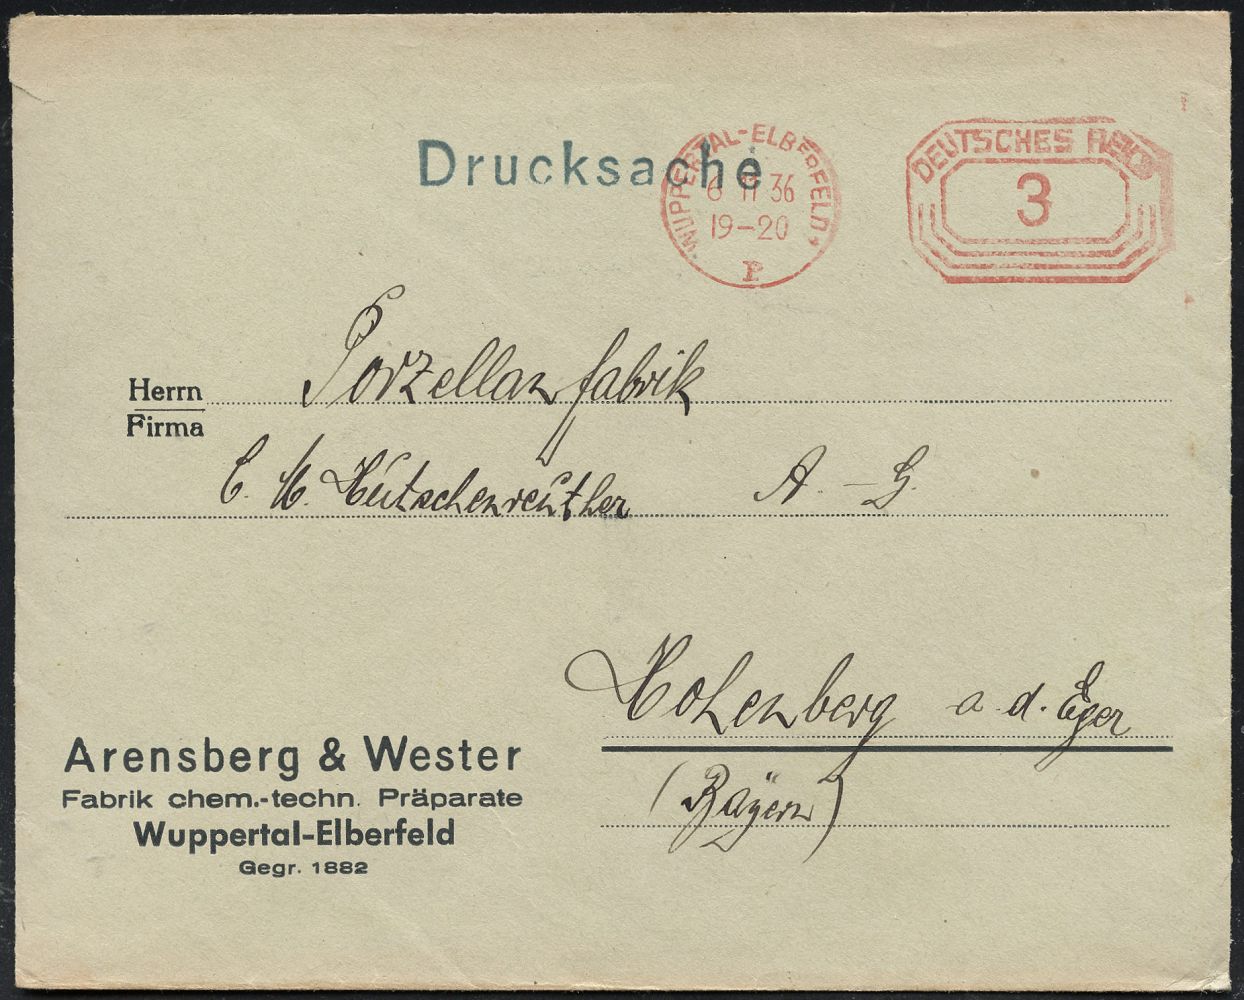 Drucksache
WUPPERTAL-ELBERFELD
6 11 36
19-20
P
DEUTSCHES REICH
3
Herrn
Firma
Porzellanfabrik
C. M. Hutschenreuther A.-G.
Hohenberg a. d. Eger
(Bayern)
Arensberg & Wester
Fabrik chem.-techn. Präparate
Wuppertal-Elberfeld
Gegr. 1882